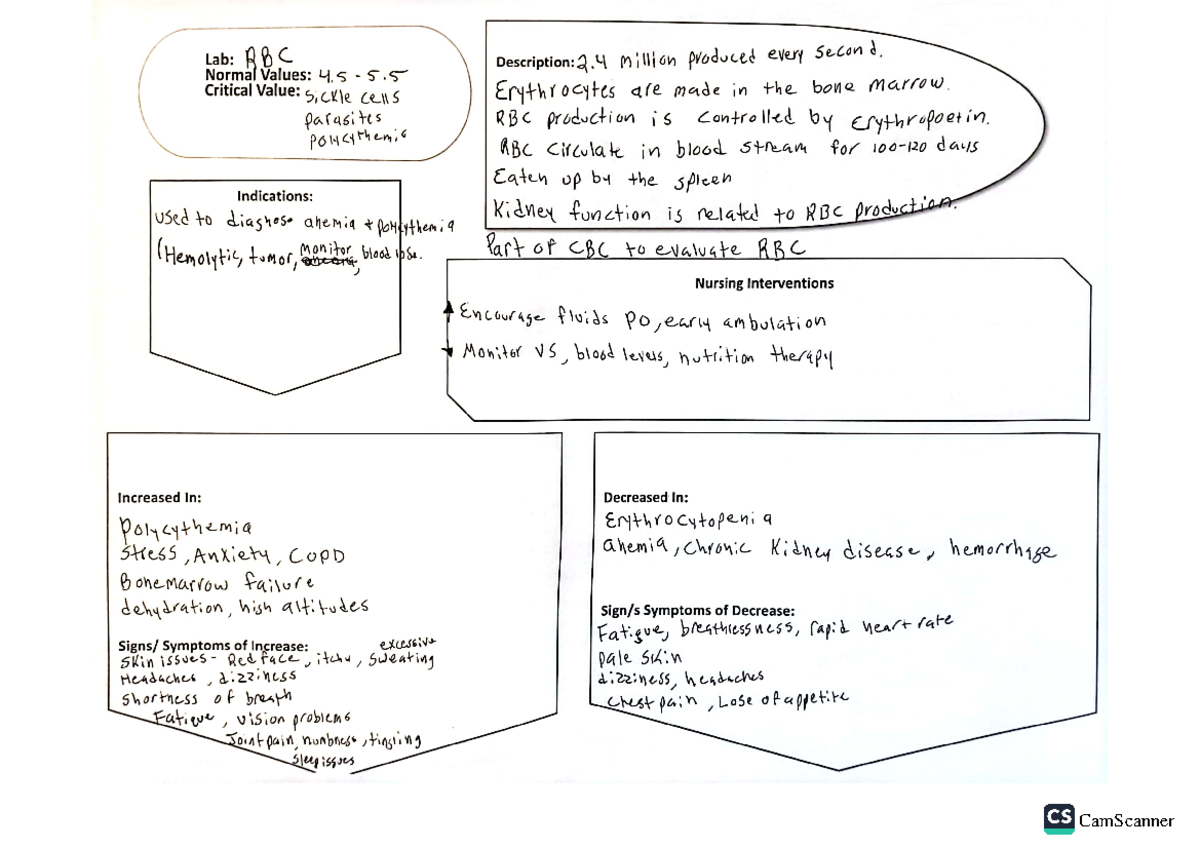 Lab: RBC
Normal Values: 4.5 - 5.5
Critical Value: Sickle cells
parasites
polycythemia
Description: 2.4 million produced every second.
Erythrocytes are made in the bone marrow.
RBC production is controlled by erythropoetin.
RBC circulate in blood stream for 100-120 days
Eaten up by the spleen
Kidney function is related to RBC production.
Part of CBC to evaluate RBC
Indications:
used to diagnose anemia + polycythemia
(Hemolytic, tumor, monitor blood lose.
Nursing Interventions
↑ Encourage fluids PO, early ambulation
↓ Monitor VS, blood levels, nutrition therapy
Increased In:
Polycythemia
Stress, Anxiety, COPD
Bonemarrow failure
dehydration, high altitudes
Signs/ Symptoms of Increase: excessive
Skin issues - Red face, itchy, sweating
Headaches, dizziness
Shortness of breath
Fatigue, vision problems
Joint pain, numbness, tingling
Sleep issues
Decreased In:
Erythrocytopenia
anemia, chronic kidney disease, hemorrhage
Sign/s Symptoms of Decrease:
Fatigue, breathlessness, rapid heart rate
pale skin
dizziness, headaches
chest pain, Lose of appetite
CS CamScanner